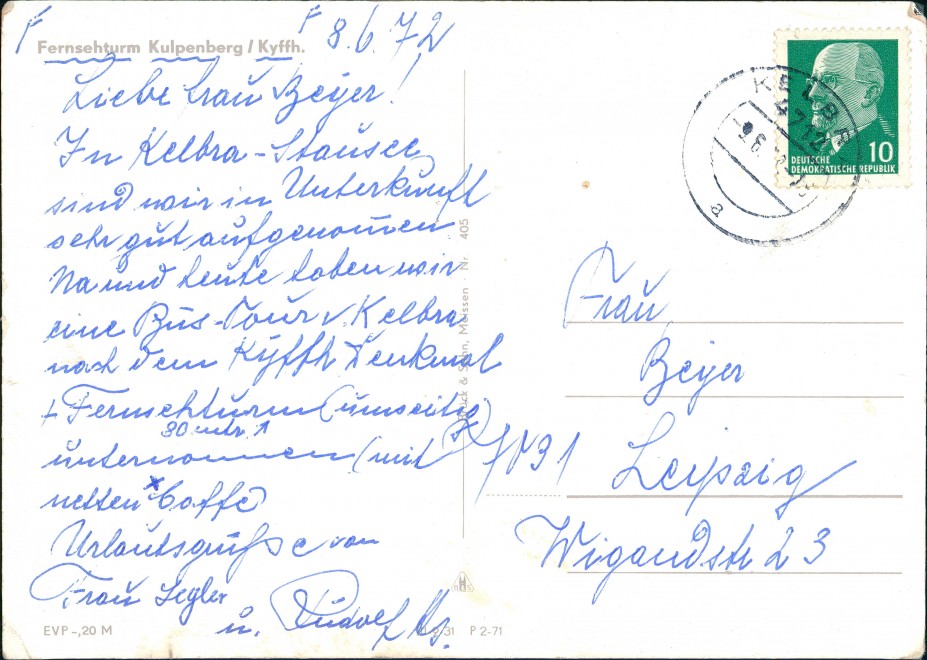 Fernsehturm Kulpenberg / Kyffh.
8.6.72
Liebe Frau Beyer!
In Kelbra-Stausee
sind wir in Unterkunft
sehr gut aufgenommen
Na und heute haben wir
eine Bus-Tour v. Kelbra
nach dem Kyffh Denkmal
+ Fernsehturm (umseitig)
80 mtr. ↑
unternommen (mit
netten Caffe)
Urlaubsgrüße von
Frau Segler
u. Rudolf
EVP -,20 M
P 2-71
Druck & Spahn, Meissen Nr 405
KELBRA
4712
a
DEUTSCHE
DEMOKRATISCHE REPUBLIK
10
Frau
Beyer
7031 Leipzig
Wigandstr 23